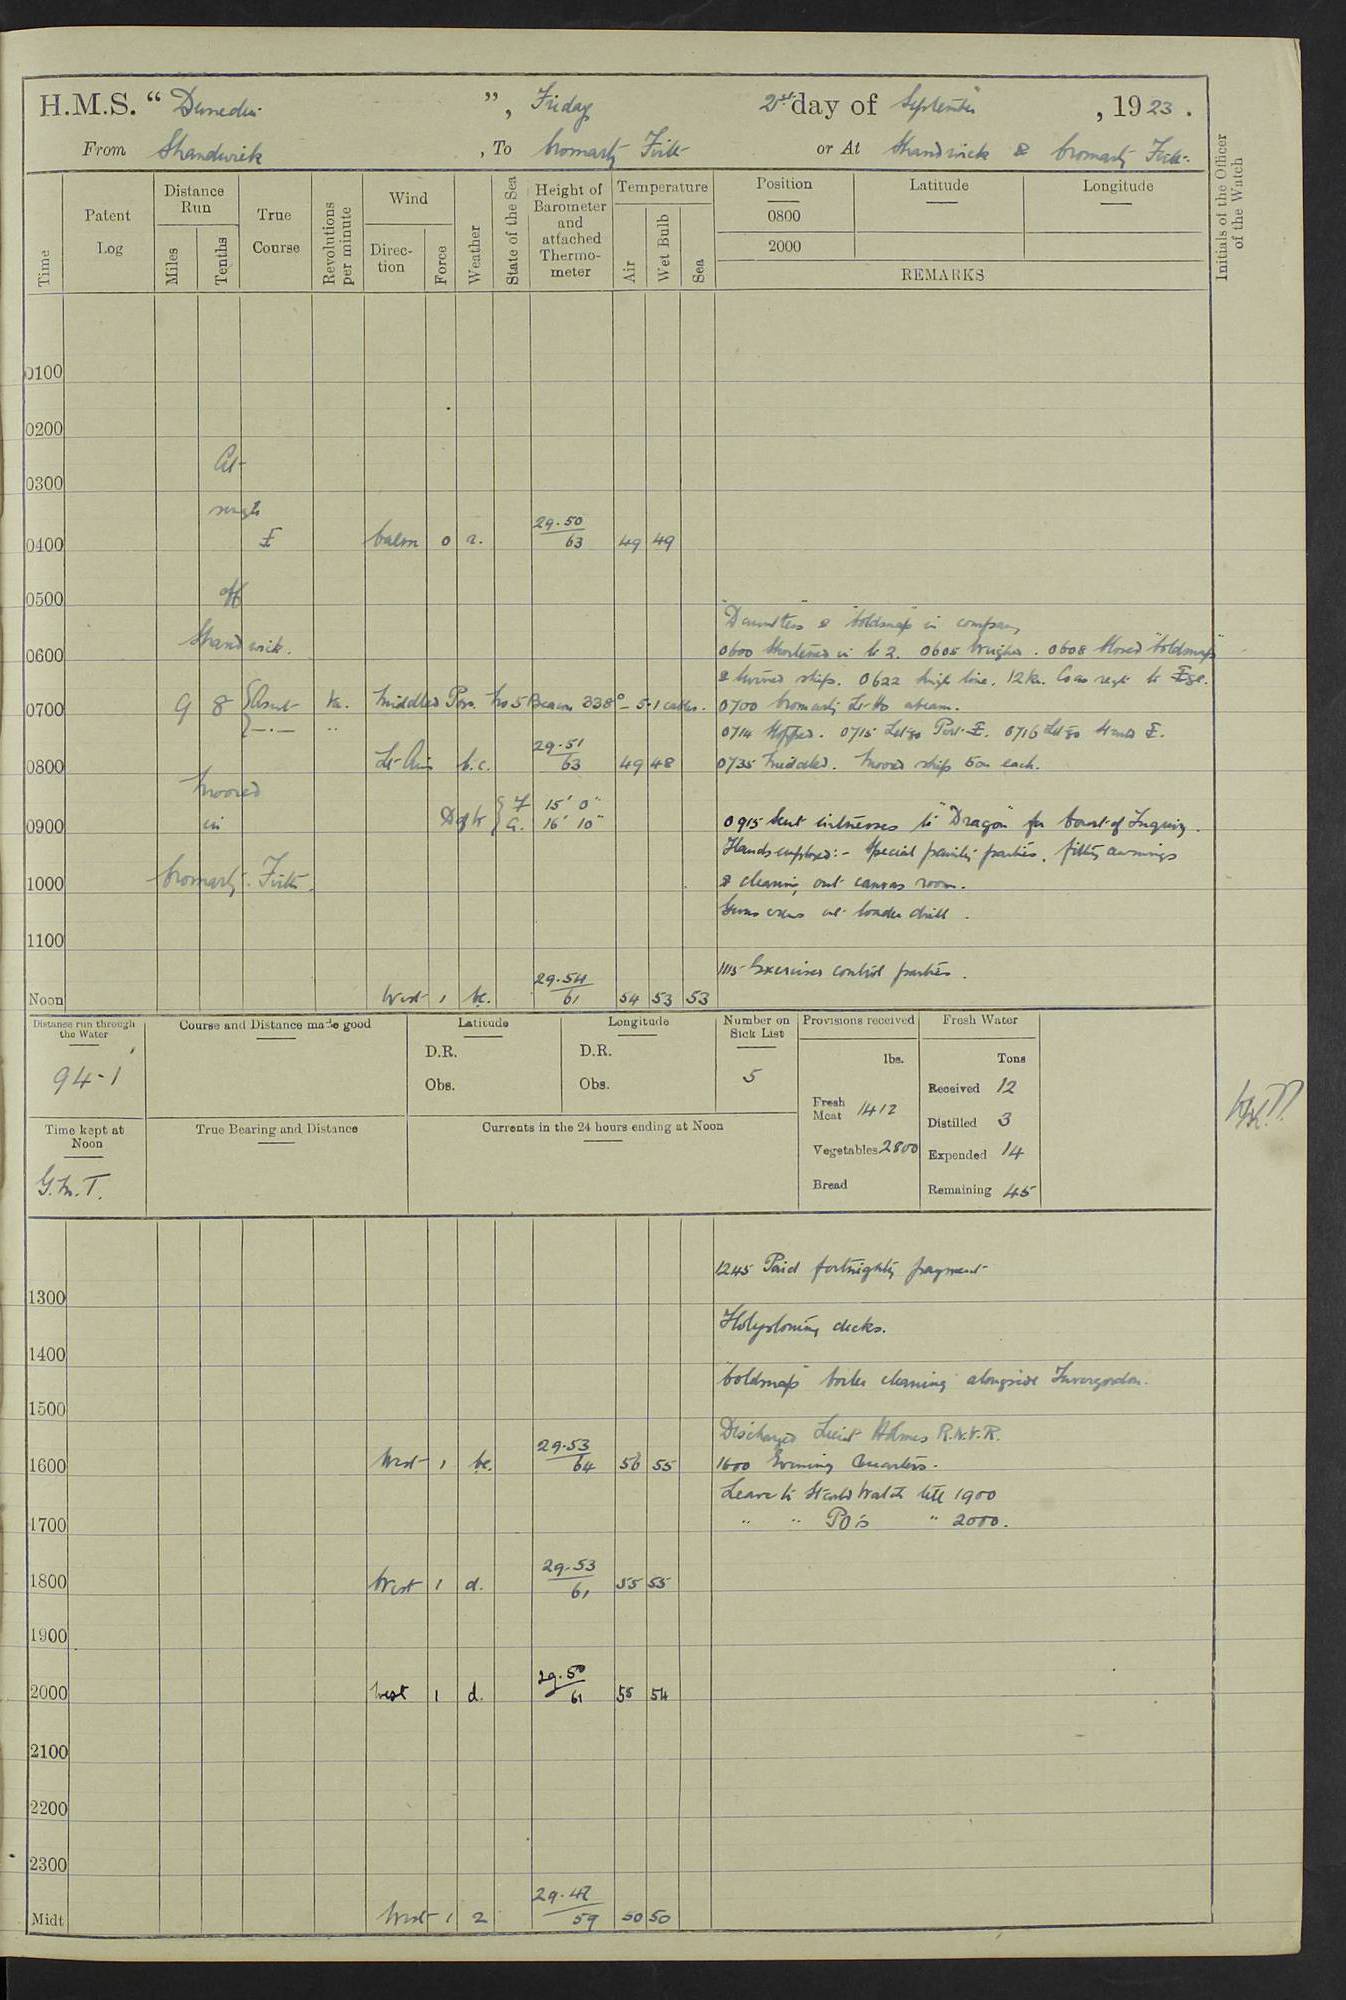 H.M.S. " Dunedin ", Friday 21st day of September, 1923.
From Shandwick, To Cromarty Firth or At Shandwick & Cromarty Firth.
Initials of the Officer of the Watch
Time
Patent Log
Distance Run
Miles
Tenths
True Course
Revolutions per minute
Wind
Direction
Force
Weather
State of the Sea
Height of Barometer and attached Thermometer
Temperature
Air
Wet Bulb
Sea
Position
Latitude
Longitude
0800
2000
REMARKS
0100
0200
At
0300
single
0400 Calm 0 29.50/63 49 49
0500 off
"Dauntless" & "Coldsnap" in company
Shandwick.
0600 0600 Shortened in to 2. 0605 Weighed. 0608 Closed "Coldsnap"
& turned ship. 0622 Single line. 12 Kn. Co as reqt to
9 8 Middled Posn. No 5 Beacon 338° – 5.1 cables.
0700 0700 Cromarty Lt Ho abeam.
0714 Stopped. 0715 Let go Port 0716 Let go Starbd
0800 Lt Airs b.c. 29.51/63 49 48 0735 Middled. Moored ship 5 on each.
Moored
in Dft F 15' 0"
0900 A. 16' 10" 0915 Sent witnesses to "Dragon" for Court of Inquiry.
Hands employed:- Special painting parties, fitting awnings
Cromarty Firth.
1000 & cleaning out canvas room.
Guns crews at loader drill.
1100
1115 Exercised control parties.
Noon West 1 bc. 29.54/61 54 53 53
Distance run through the Water
94.1
Course and Distance made good
Latitude
D.R.
Obs.
Longitude
D.R.
Obs.
Number on Sick List
5
Provisions received
lbs.
Fresh Meat 1412
Vegetables 2800
Bread
Fresh Water
Tons
Received 12
Distilled 3
Expended 14
Remaining 45
Time kept at Noon
G.M.T.
True Bearing and Distance
Currents in the 24 hours ending at Noon
1245 Paid fortnightly payment
1300
Holystoning decks.
1400
"Coldsnap" boiler cleaning alongside Invergordon.
1500
Discharged Lieut Holmes R.N.V.R.
1600 West 1 bc. 29.53/64 56 55 1600 Evening Quarters.
Leave to Starbd Watch till 1900
" " PO's " 2000.
1700
1800 West 1 d. 29.53/61 55 55
1900
2000 West 1 d. 29.50/61 55 54
2100
2200
2300
Midt West 1 29.42/59 50 50